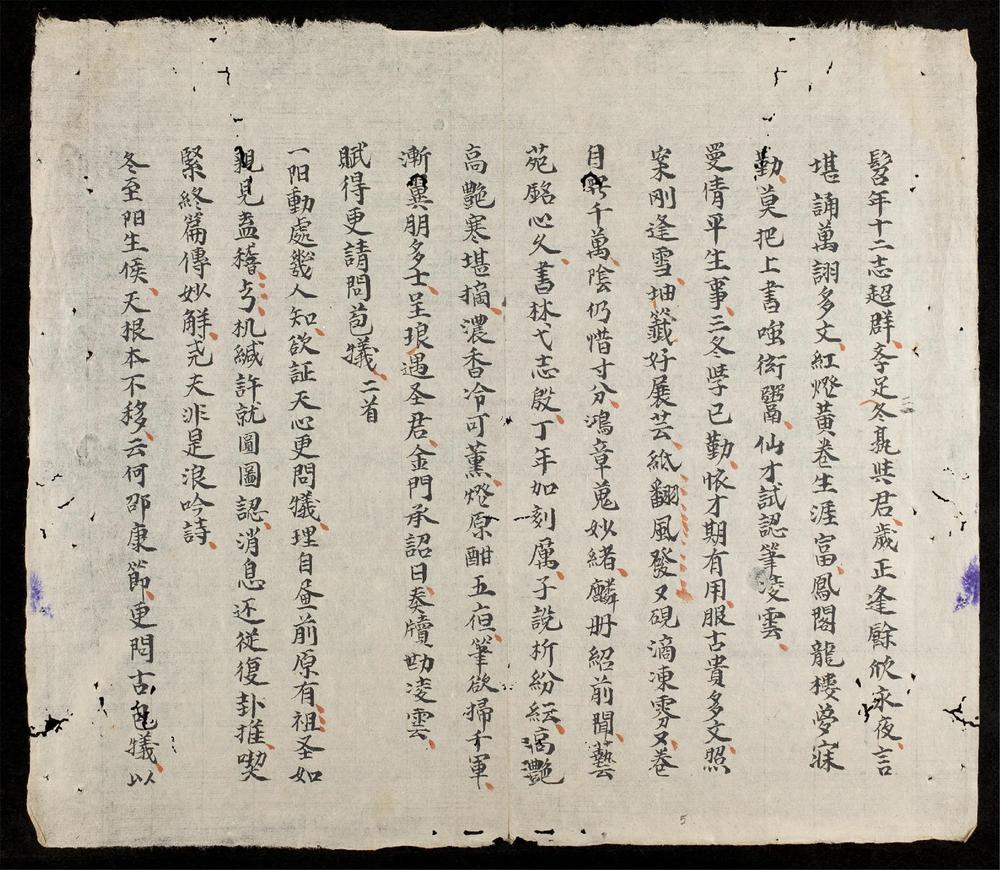 髫年十二志超群李足冬氣共君歲正逢餘欣永夜言
堪誦萬詡多文紅燈黃卷生涯富鳳閣龍樓夢寐
勤莫把上書嗤衒鬻仙才試認筆凌雲
曼倩平生事三冬學已勤恢才期有用服古貴多文照
案剛逢雪抽籤好展芸紙翻風發又硯滴凍雰又卷
目千萬陰仍惜寸分鴻章蒐妙緒麟册紹前聞藝
苑銘心久書林弋志殷丁年如刻厲子說析紛紜高艷
高艷寒堪摘濃香冷可薰燈原酣五夜筆欲掃千軍
漸冀朋多士呈琅遇圣君金門承詔日奏牘勘凌雲
賦得更請問苞犧二首
一阳動處幾人知欲証天心更問犧理自圣前原有祖圣如
親見盍稽旁机緘許就圓圖認消息还從復卦推喫
緊終篇傳妙解尭夫非是浪吟詩
冬至阳生候天根本不移云何邵康節更問古包犧以
5